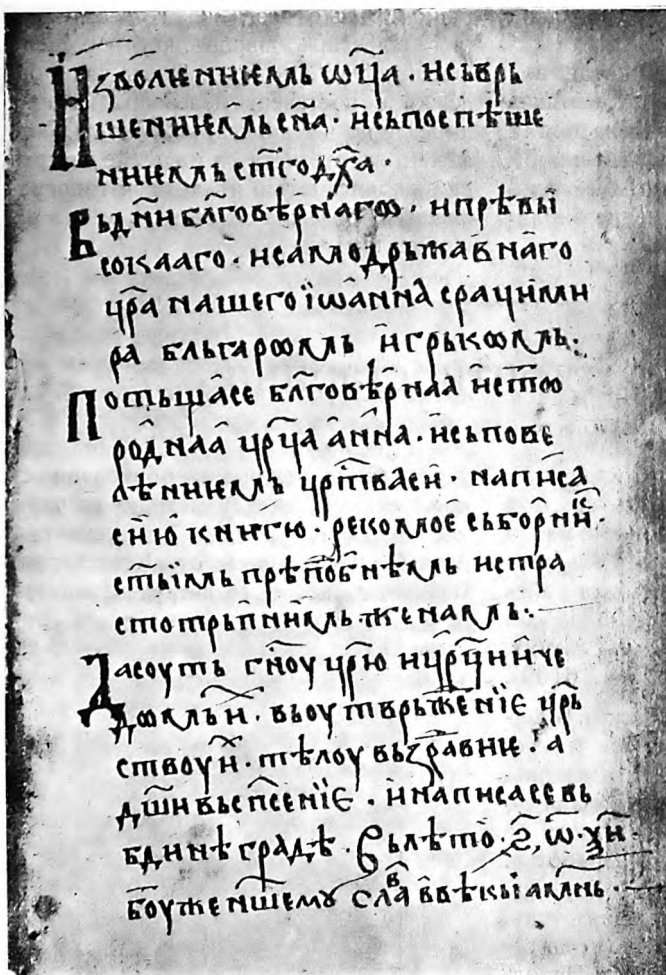 И҆зволѥниѥмь ѡ҃ца · и съврь
шениѥмь сн҃а · и съпоспѣше
ниѥмь ст҃го дх҃а ·
Въ дн҃и бл҃говѣрнаго · и прѣвы
сокааго · и самодрьжавнаго
цр҃ѣ нашего їѡанна срацими
ра бльгарѡмь и грькѡмь :·
Потъща се бл҃говѣрнаа и ст҃о
родⷩ҇аа цр҃ца анна · и съпове
лѣниѥмь цр҃тва си · написа
сию книгю · рекомоє съборникⷩ҇ ·
ст҃ыимь прѣпоⷣбнѣмь и стра
стотрьпⷩ҇имь женамь :·
Да соуть гн҃оу цр҃ю и цр҃ци и че
дѡмь и · въ оутврьжениє цр҃ь
ствоу и · тѣлоу въздравиѥ · а
дш҃и въ сп҃сениє · и написа се въ
бдинѣ градѣ · въ лѣто · ҂ѕ҃ · ѡ҃ · ѯ҃и ·
б҃оу же нш҃емꙋ слаⷡ в вѣкы ам҃нь ·